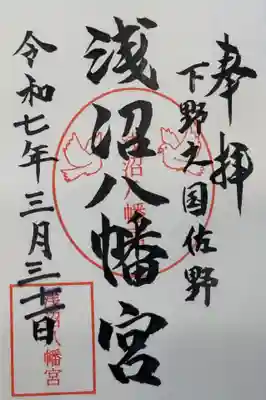 奉拝
下野之国佐野
浅沼八幡宮
令和七年三月三十一日
浅沼八幡宮
浅沼八幡宮